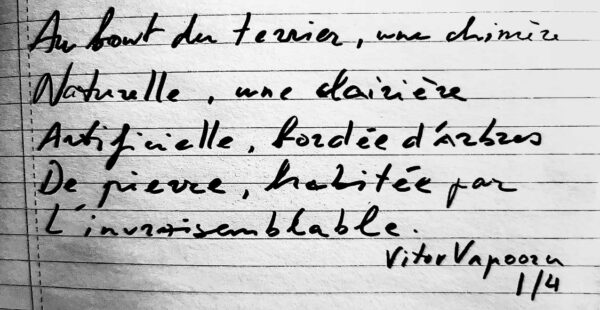 Au bout du terrier, une chimère
Naturelle, une clairière
Artificielle, bordée d'Arbres
De pierre, habitée par
L'invraisemblable.
Vitor Vapoozu
1/4